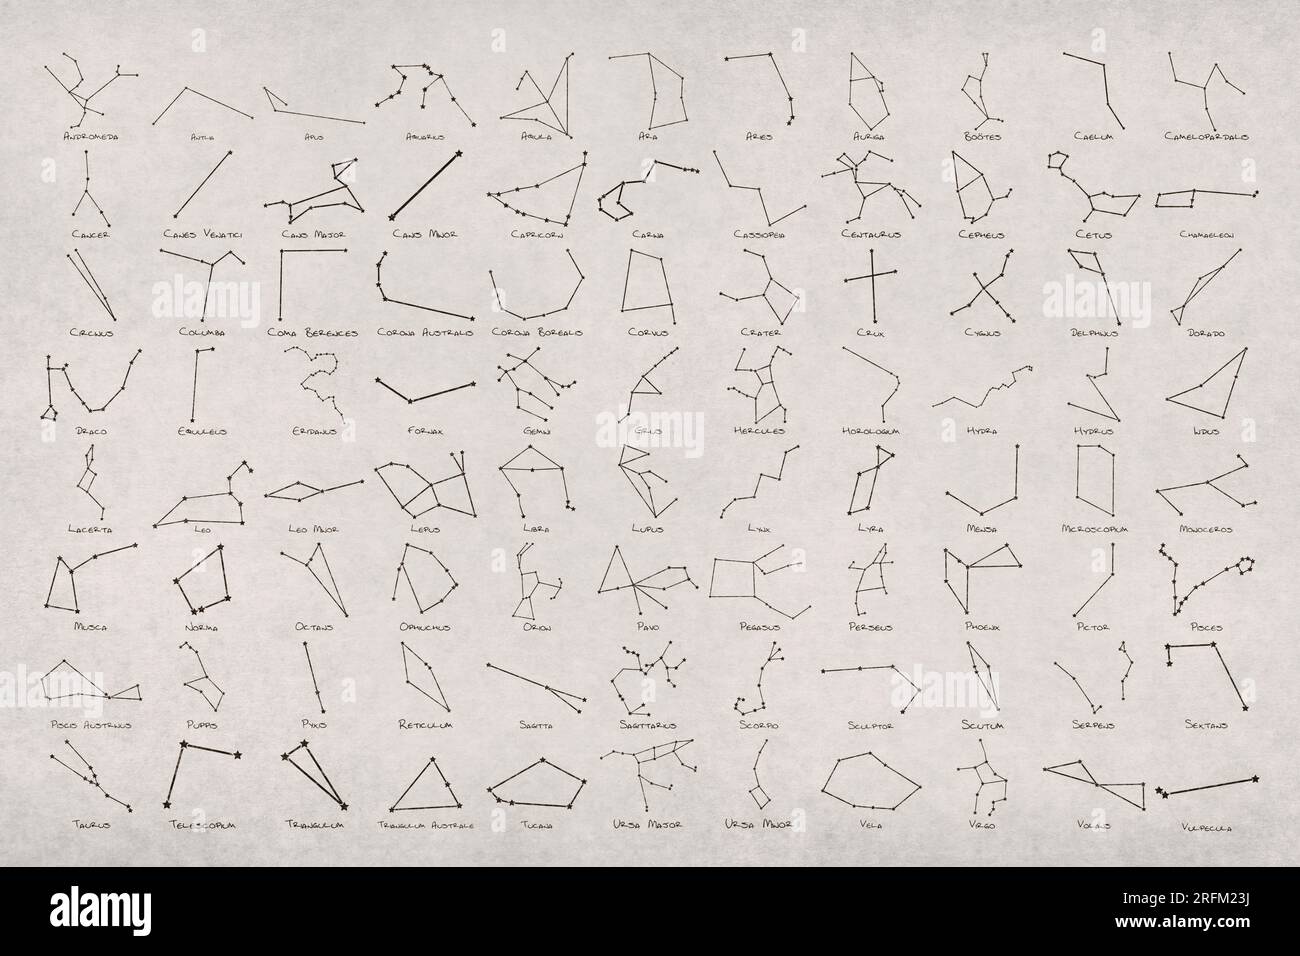 Andromeda Antlia Apus Aquarius Aquila Ara Aries Auriga Boötes Caelum Camelopardalis
Cancer Canes Venatici Canis Major Canis Minor Capricorn Carina Cassiopeia Centaurus Cepheus Cetus Chamaeleon
Circinus Columba Coma Berenices Corona Australis Corona Borealis Corvus Crater Crux Cygnus Delphinus Dorado
Draco Equuleus Eridanus Fornax Gemini Grus Hercules Horologium Hydra Hydrus Indus
Lacerta Leo Leo Minor Lepus Libra Lupus Lynx Lyra Mensa Microscopium Monoceros
Musca Norma Octans Ophiuchus Orion Pavo Pegasus Perseus Phoenix Pictor Pisces
Piscis Austrinus Puppis Pyxis Reticulum Sagitta Sagittarius Scorpio Sculptor Scutum Serpens Sextans
Taurus Telescopium Triangulum Triangulum Australe Tucana Ursa Major Ursa Minor Vela Virgo Volans Vulpecula
alamy
Image ID: 2RFM23J
www.alamy.com